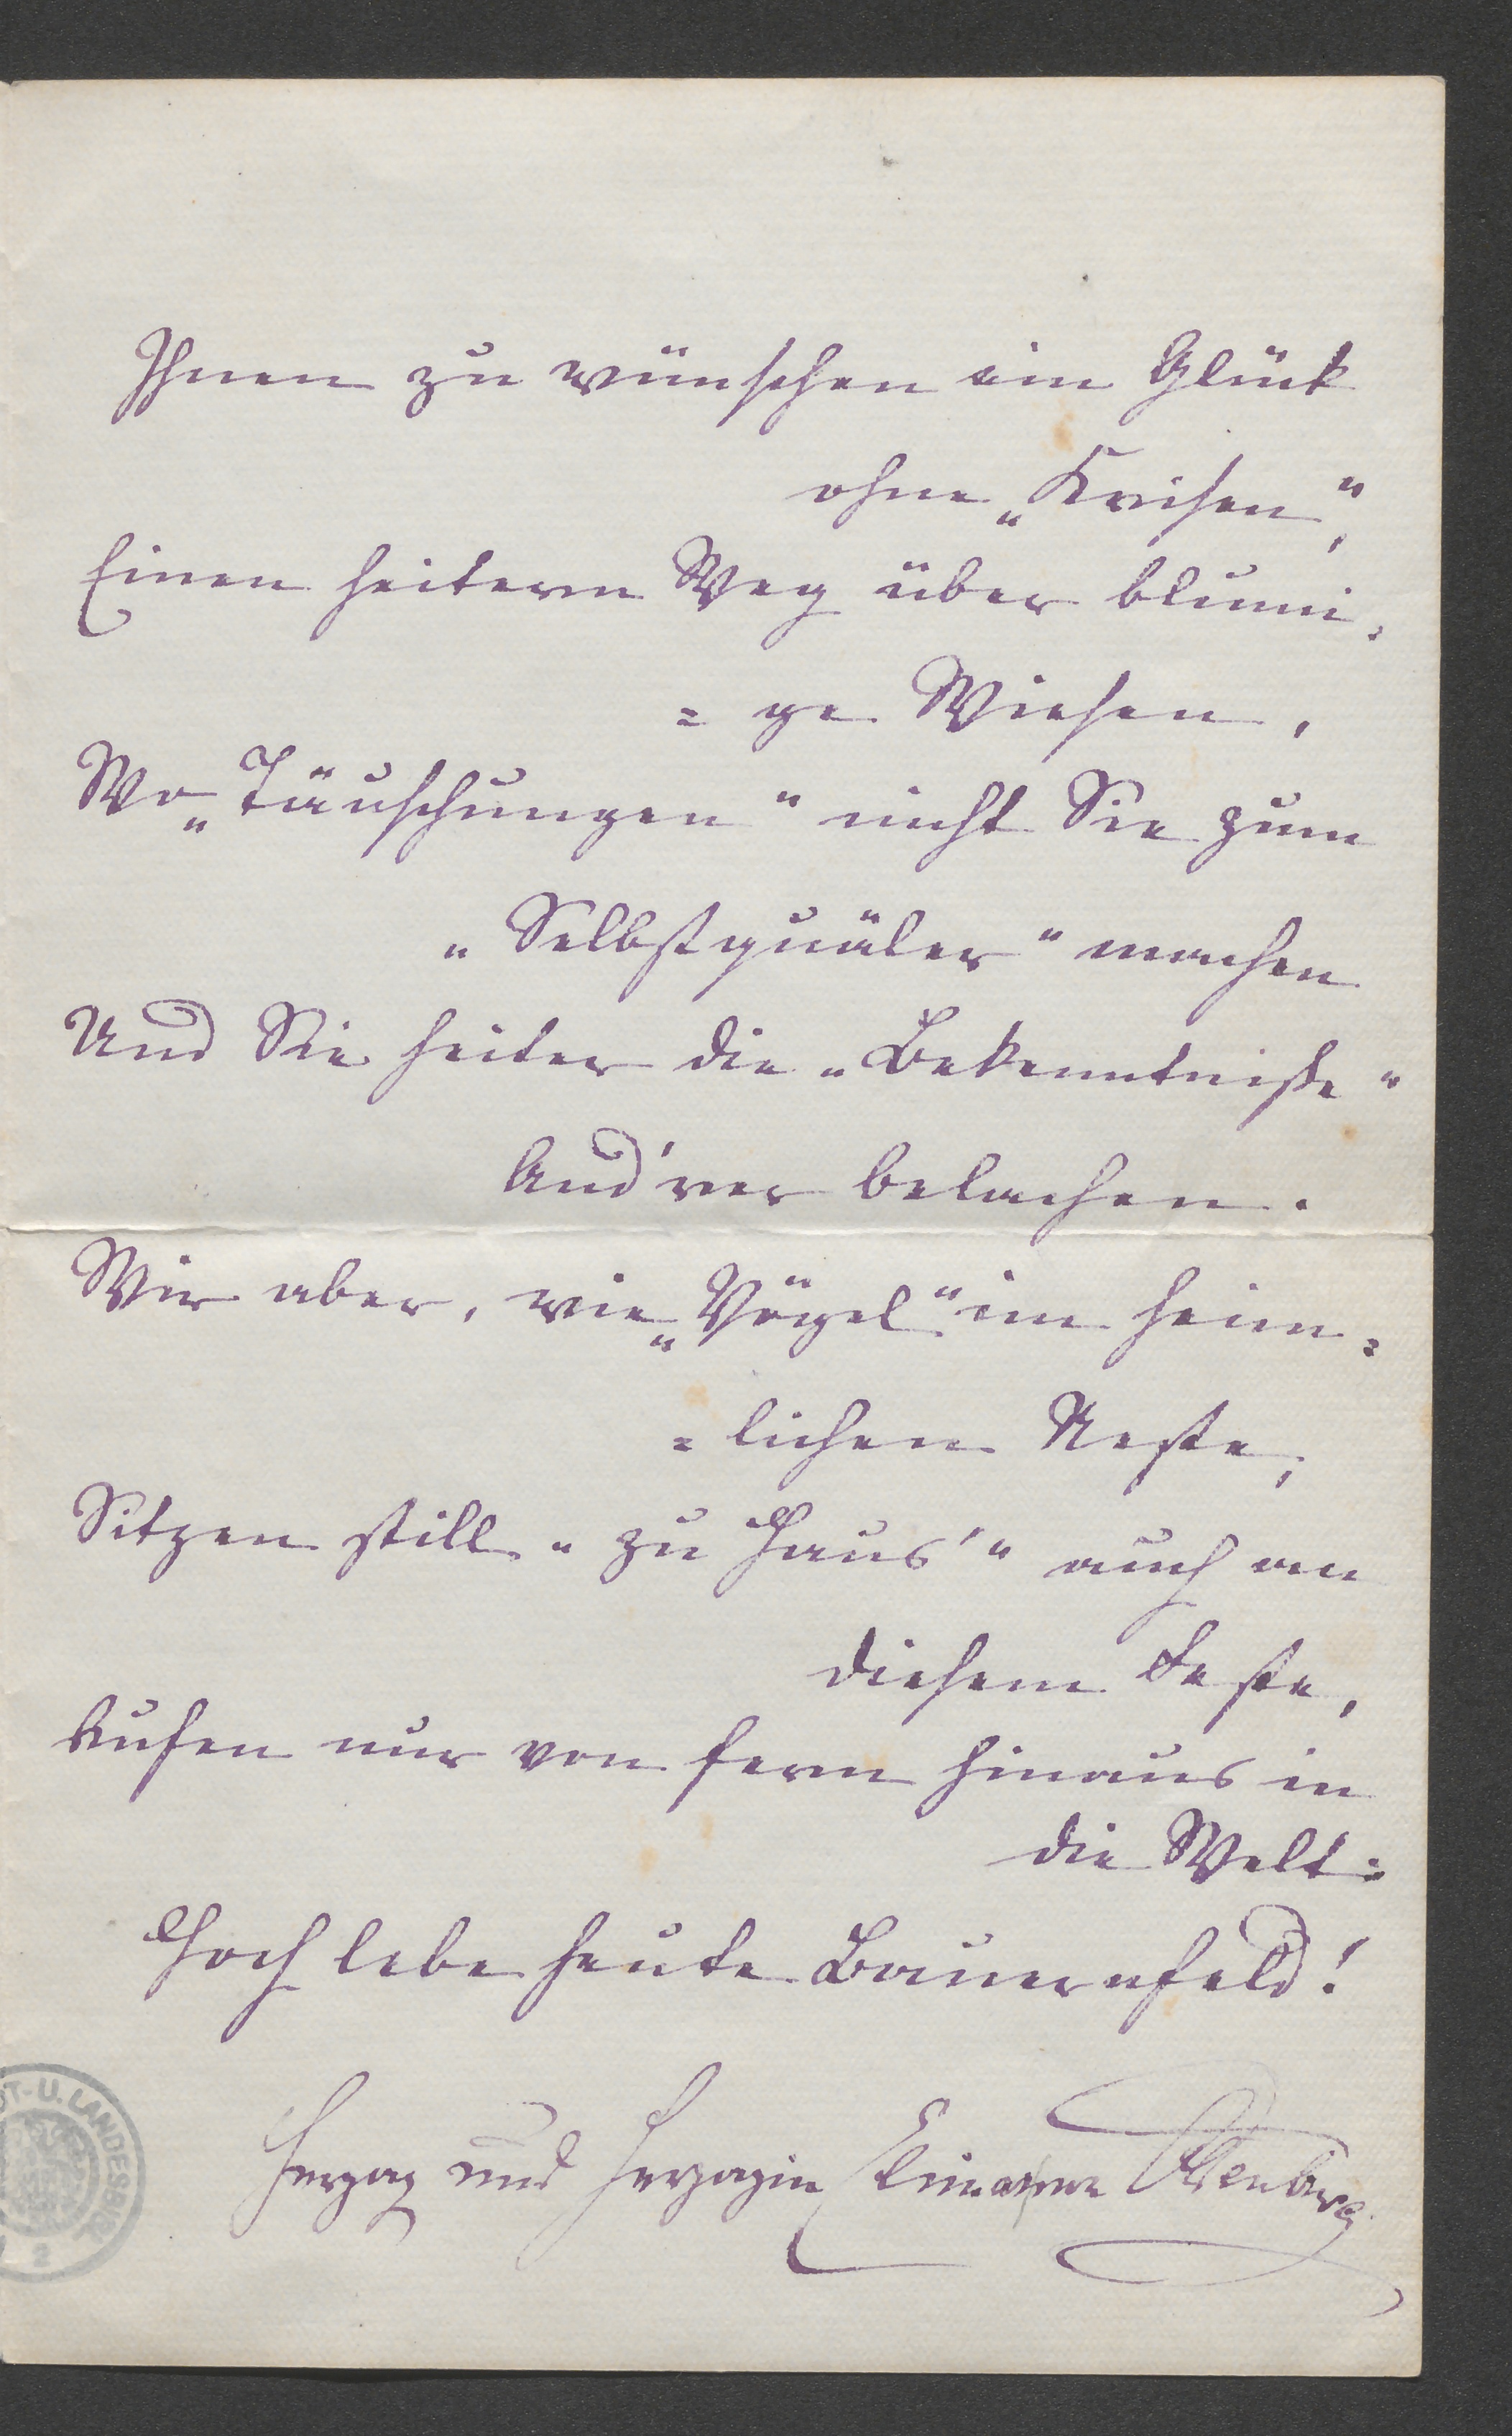 Ihnen zu wünschen ein Glück
ohne „Krisen“,
Einen heitern Weg über blumi=
=ge Wiesen,
Wo „Täuschungen“ nicht Sie zum
„Selbstquäler“ machen
Und Sie heiter die „Bekenntniße“
And'rer belachen.
Wir aber, wie „Vögel“ im heim=
=lichen Neste,
Sitzen still „zu Haus'“ auch an
diesem Feste,
Rufen nur von fern hinaus in
die Welt:
Hoch lebe heute Bauernfeld!
Herzog und Herzogin Elimar von Oldenburg
T-U. LANDESBIBL
2